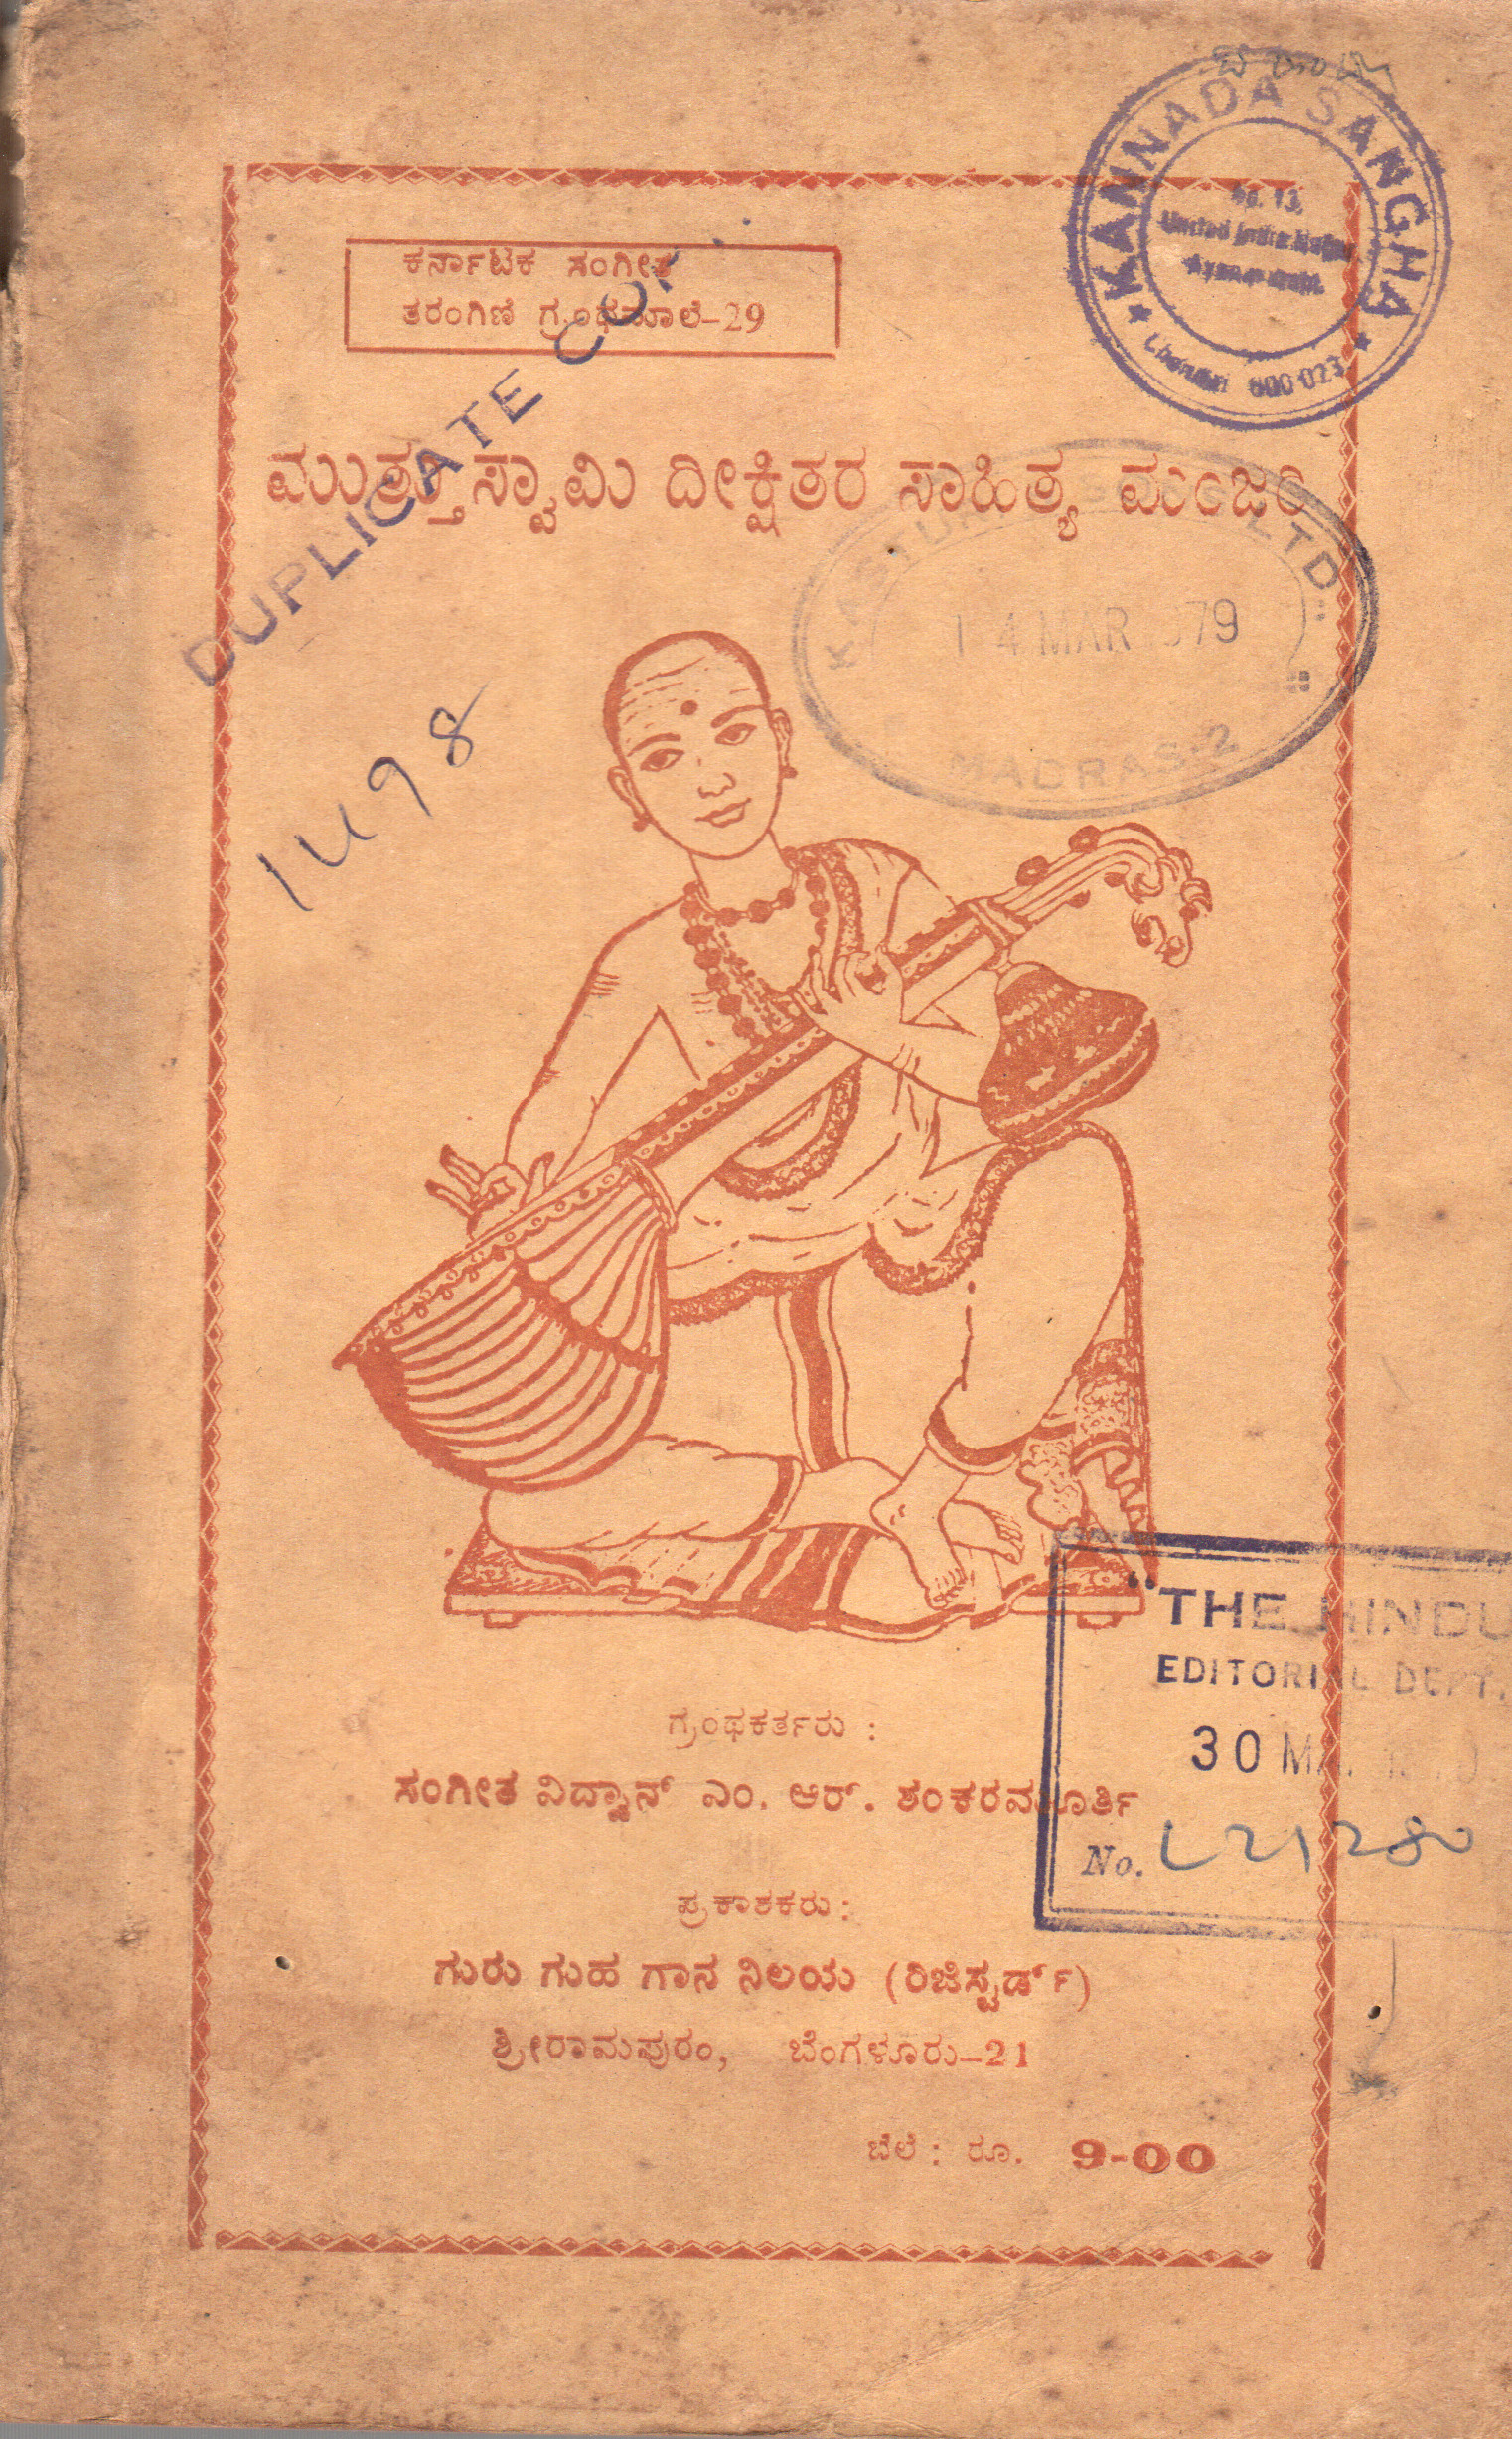 KANNADA SANGHA
No. 13,
United India Nagar
Chennai 600 023
ಕರ್ನಾಟಕ ಸಂಗೀತ
ತರಂಗಿಣಿ ಗ್ರಂಥಮಾಲೆ-29
DUPLICATE COPY
ಮುತ್ತುಸ್ವಾಮಿ ದೀಕ್ಷಿತರ ಸಾಹಿತ್ಯ ಮಂಜರಿ
LTD.
14 MAR 1979
MADRAS-2
"THE HINDU
EDITORIAL DEPT.
30
No. L21280
ಗ್ರಂಥಕರ್ತರು :
ಸಂಗೀತ ವಿದ್ವಾನ್ ಎಂ. ಆರ್. ಶಂಕರಮೂರ್ತಿ
ಪ್ರಕಾಶಕರು :
ಗುರು ಗುಹ ಗಾನ ನಿಲಯ (ರಿಜಿಸ್ಟರ್ಡ್)
ಶ್ರೀರಾಮಪುರಂ, ಬೆಂಗಳೂರು-21
ಬೆಲೆ : ರೂ. 9-00